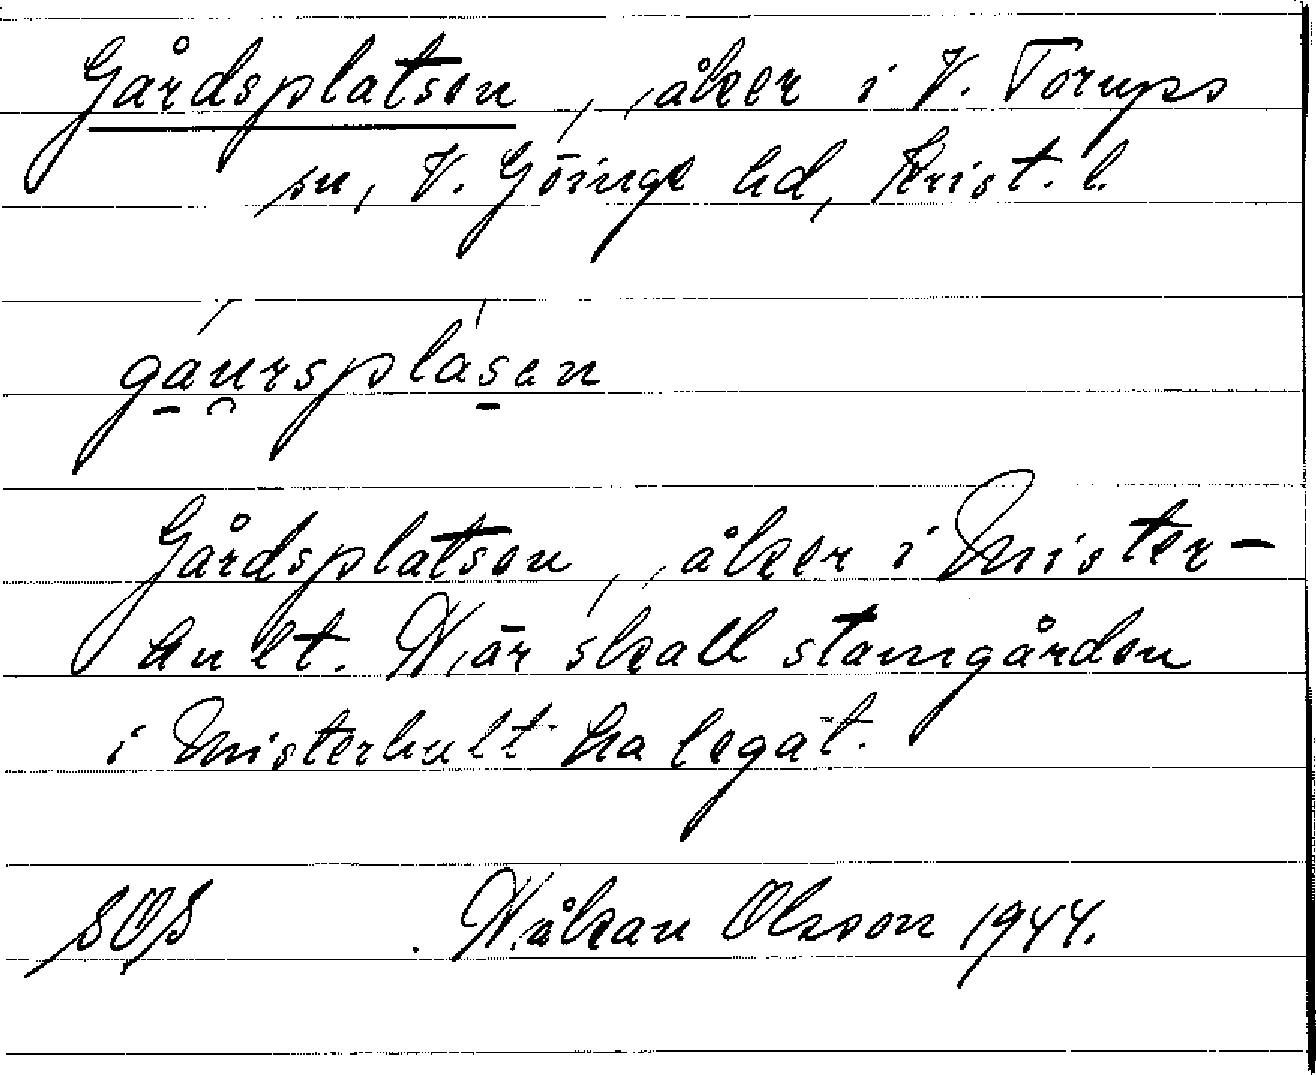 Gårdsplatsen, åker i V. Torups
sn, V. Göinge hd, Krist. l.
gau̯rsplasen
Gårdsplatsen, åker i Mister-
hult. Här skall stamgården
i Misterhult ha legat.
SOS Håkan Olsson 1944.